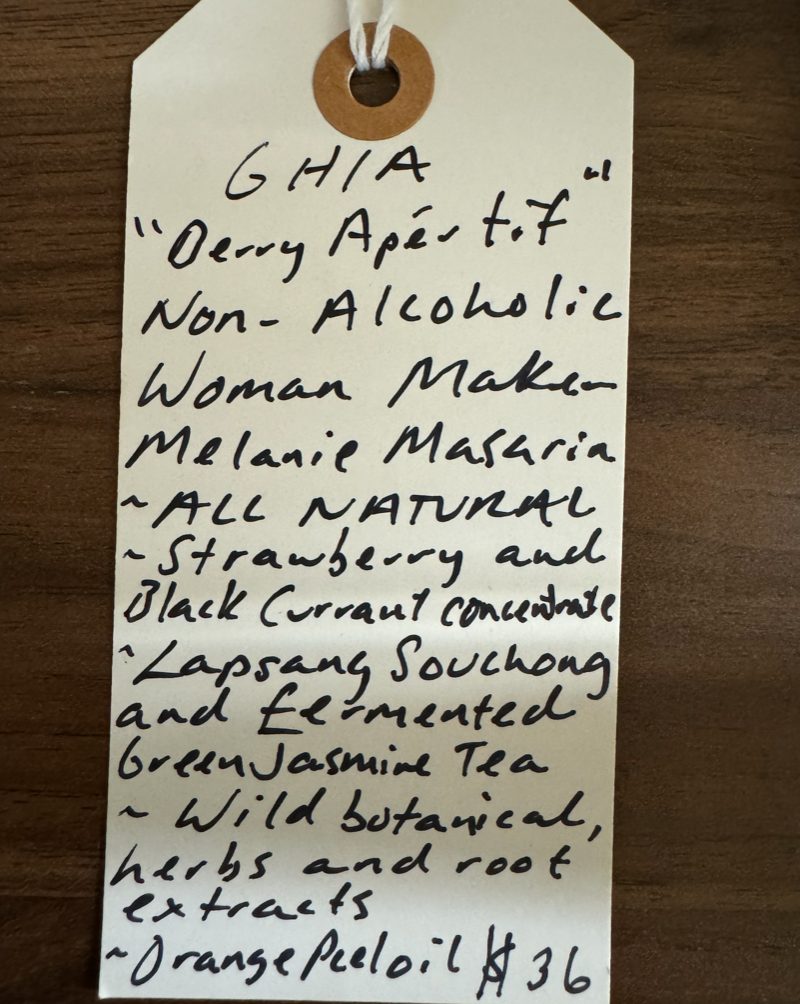 GHIA
"Berry Apértif"
Non- Alcoholic
Woman Maker
Melanie Masarin
~ALL NATURAL
~Strawberry and
Black Currant concentrate
~Lapsang Souchong
and fermented
Green Jasmine Tea
~ Wild botanical,
herbs and root
extracts
~Orange Peel oil $36